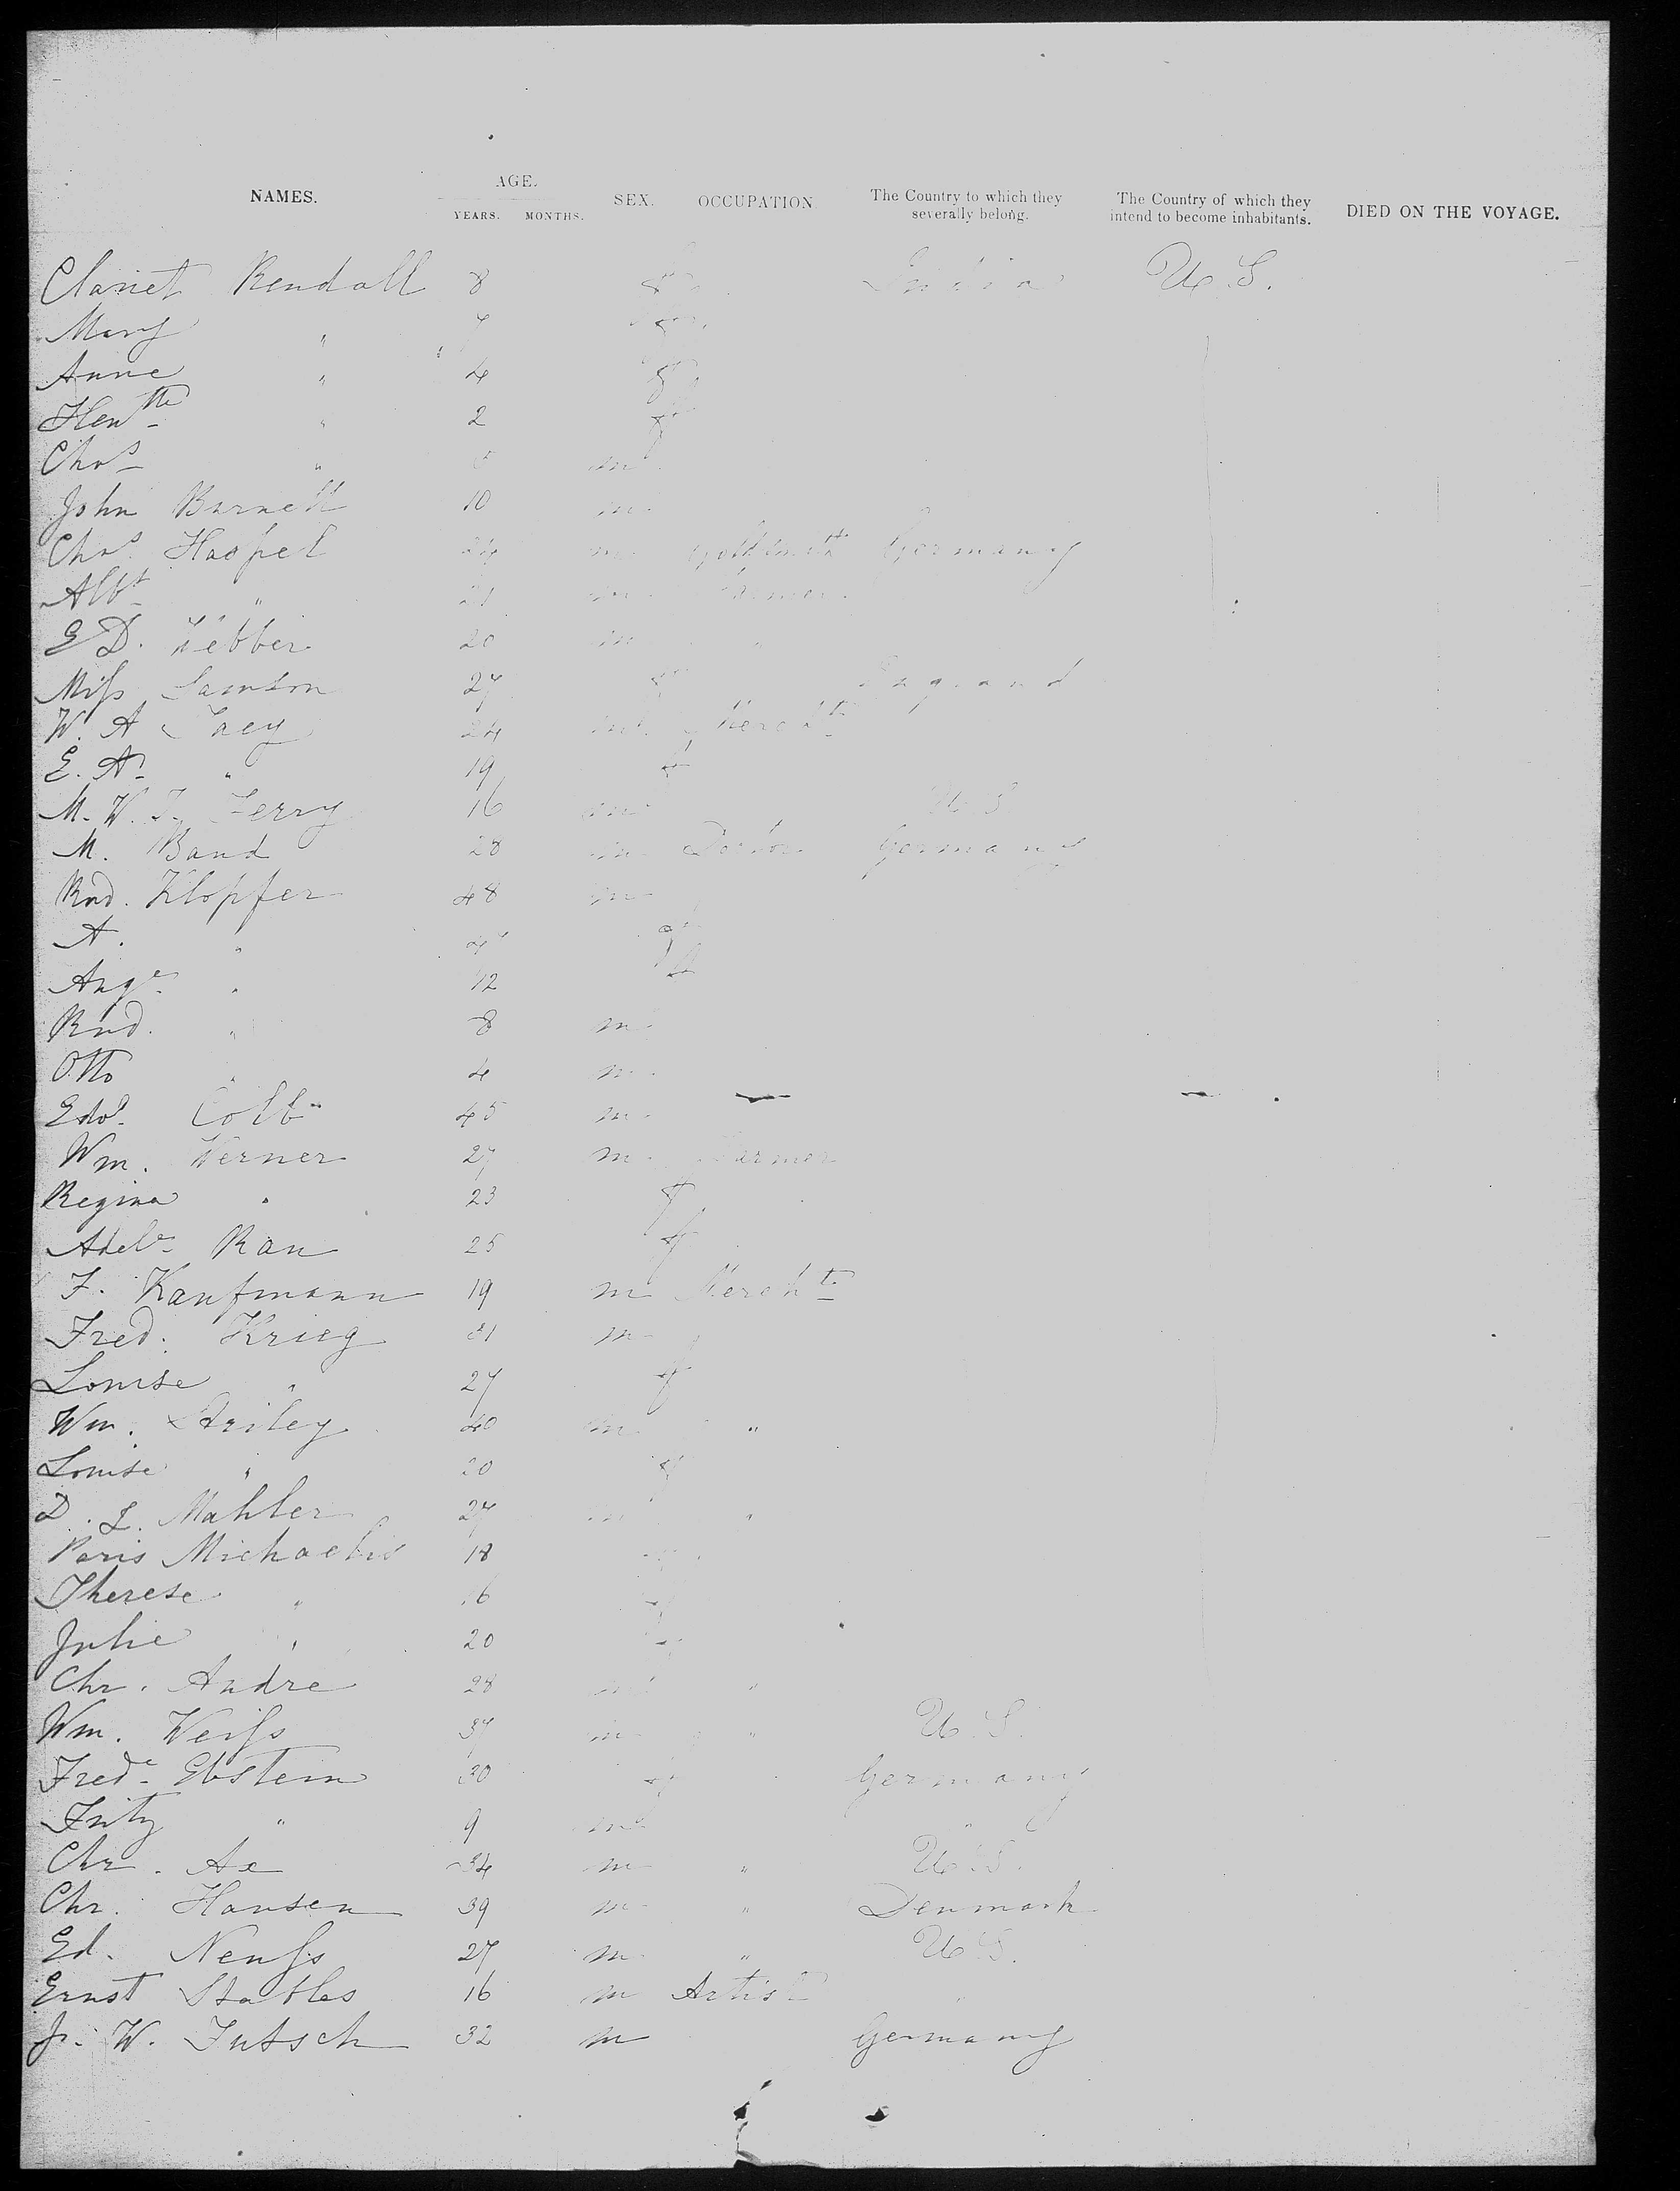 NAMES. AGE. YEARS. MONTHS. SEX. OCCUPATION. The Country to which they severally belong. The Country of which they intend to become inhabitants. DIED ON THE VOYAGE.
Clariet Rendall 8 f India U.S.
Mary " 7 f
Anne " 4 f
Hentte " 2 f
Chas " m
John Burnett 10 m
Chas. Haspel 24 m Goldsmith Germany
Albt " 21 m Farmer
E D. Webber 20 m "
Miss Samson 27 f England
W. A 24 m Mercht
E. A. " 19 f
M. W. T. Terry 16 m U S
M. Band 28 m Doctor Germany
Rud. Klopfer 48 m
A. " f
Auge " 12 f
Rud. " 8 m
Otto " 4 m
Edwd. Colb 45 m
Wm. Werner 27 m Farmer
Regina " 23 f
Adele Rau 25 f
F. Kaufmann 19 m Mercht
Fred. Krieg 31 m
Louise " 27 f
Wm. Striley 40 m "
Louise " 20 f
D. L. Mahler 27 m "
Paris Michaelis 18 f
Therese " 16 f
Julie " 20 f
Chr. André 28 m "
Wm. Weiss 37 m " U. S.
Frede Ebstein 30 f Germany
Fritz " 9 m "
Chr. Ax 34 m " U S.
Chr. Hansen 39 m " Denmark
Ed. Neuss 27 m " U S.
Ernst Stables 16 m Artist "
Jr. W. Jutsch 32 m Germany